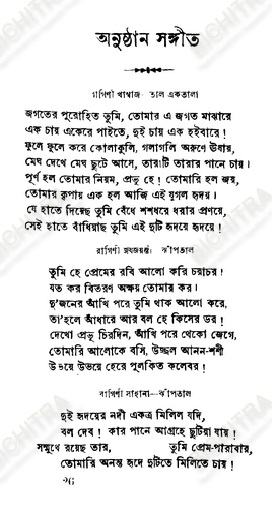 অনুষ্ঠান সঙ্গীত
রাগিণী খাম্বাজ তাল একতালা
জগতের পুরোহিত তুমি, তোমার এ জগত মাঝারে
এক চায় একেরে পাইতে, দুই চায় এক হইবারে!
ফুলে ফুলে করে কোলাকুলি, গলাগলি অরুণে উষায়,
মেঘ দেখে মেঘ ছুটে আসে, তারাটি তারার পানে চায়।
পূর্ণ হল তোমার নিয়ম, প্রভু হে! তোমারি হল জয়,
তোমার কৃপায় এক হল আজি এই যুগল হৃদয়।
যে হাতে দিয়েছ তুমি বেঁধে শশধরে ধরার প্রণয়ে,
সেই হাতে বাঁধিয়াছ তুমি এই দুটি হৃদয়ে হৃদয়ে!
রাগিণী জয়জয়ন্তী ঝাঁপতাল
তুমি হে প্রেমের রবি আলো করি চরাচর!
যত কর বিতরণ অক্ষয় তোমার কর।
দু'জনের আঁখি পরে তুমি থাক আলো করে,
তা'হলে আঁধারে আর বল হে কিসের ডর!
দেখো প্রভু চিরদিন, আঁখি পরে থেকো জেগে,
তোমারি আলোকে বসি, উজ্জ্বল আনন-শশী
উভয়ে উভয়ে হেরে পুলকিত কলেবর!
রাগিণী সাহানা—ঝাঁপতাল
দুই হৃদয়ের নদী একত্র মিলিল যদি,
বল দেব! কার পানে আগ্রহে ছুটিয়া যায়!
সম্মুখে রয়েছ তার, তুমি প্রেম-পারাবার,
তোমারি অনন্ত হৃদে দুটিতে মিলিতে চায়!